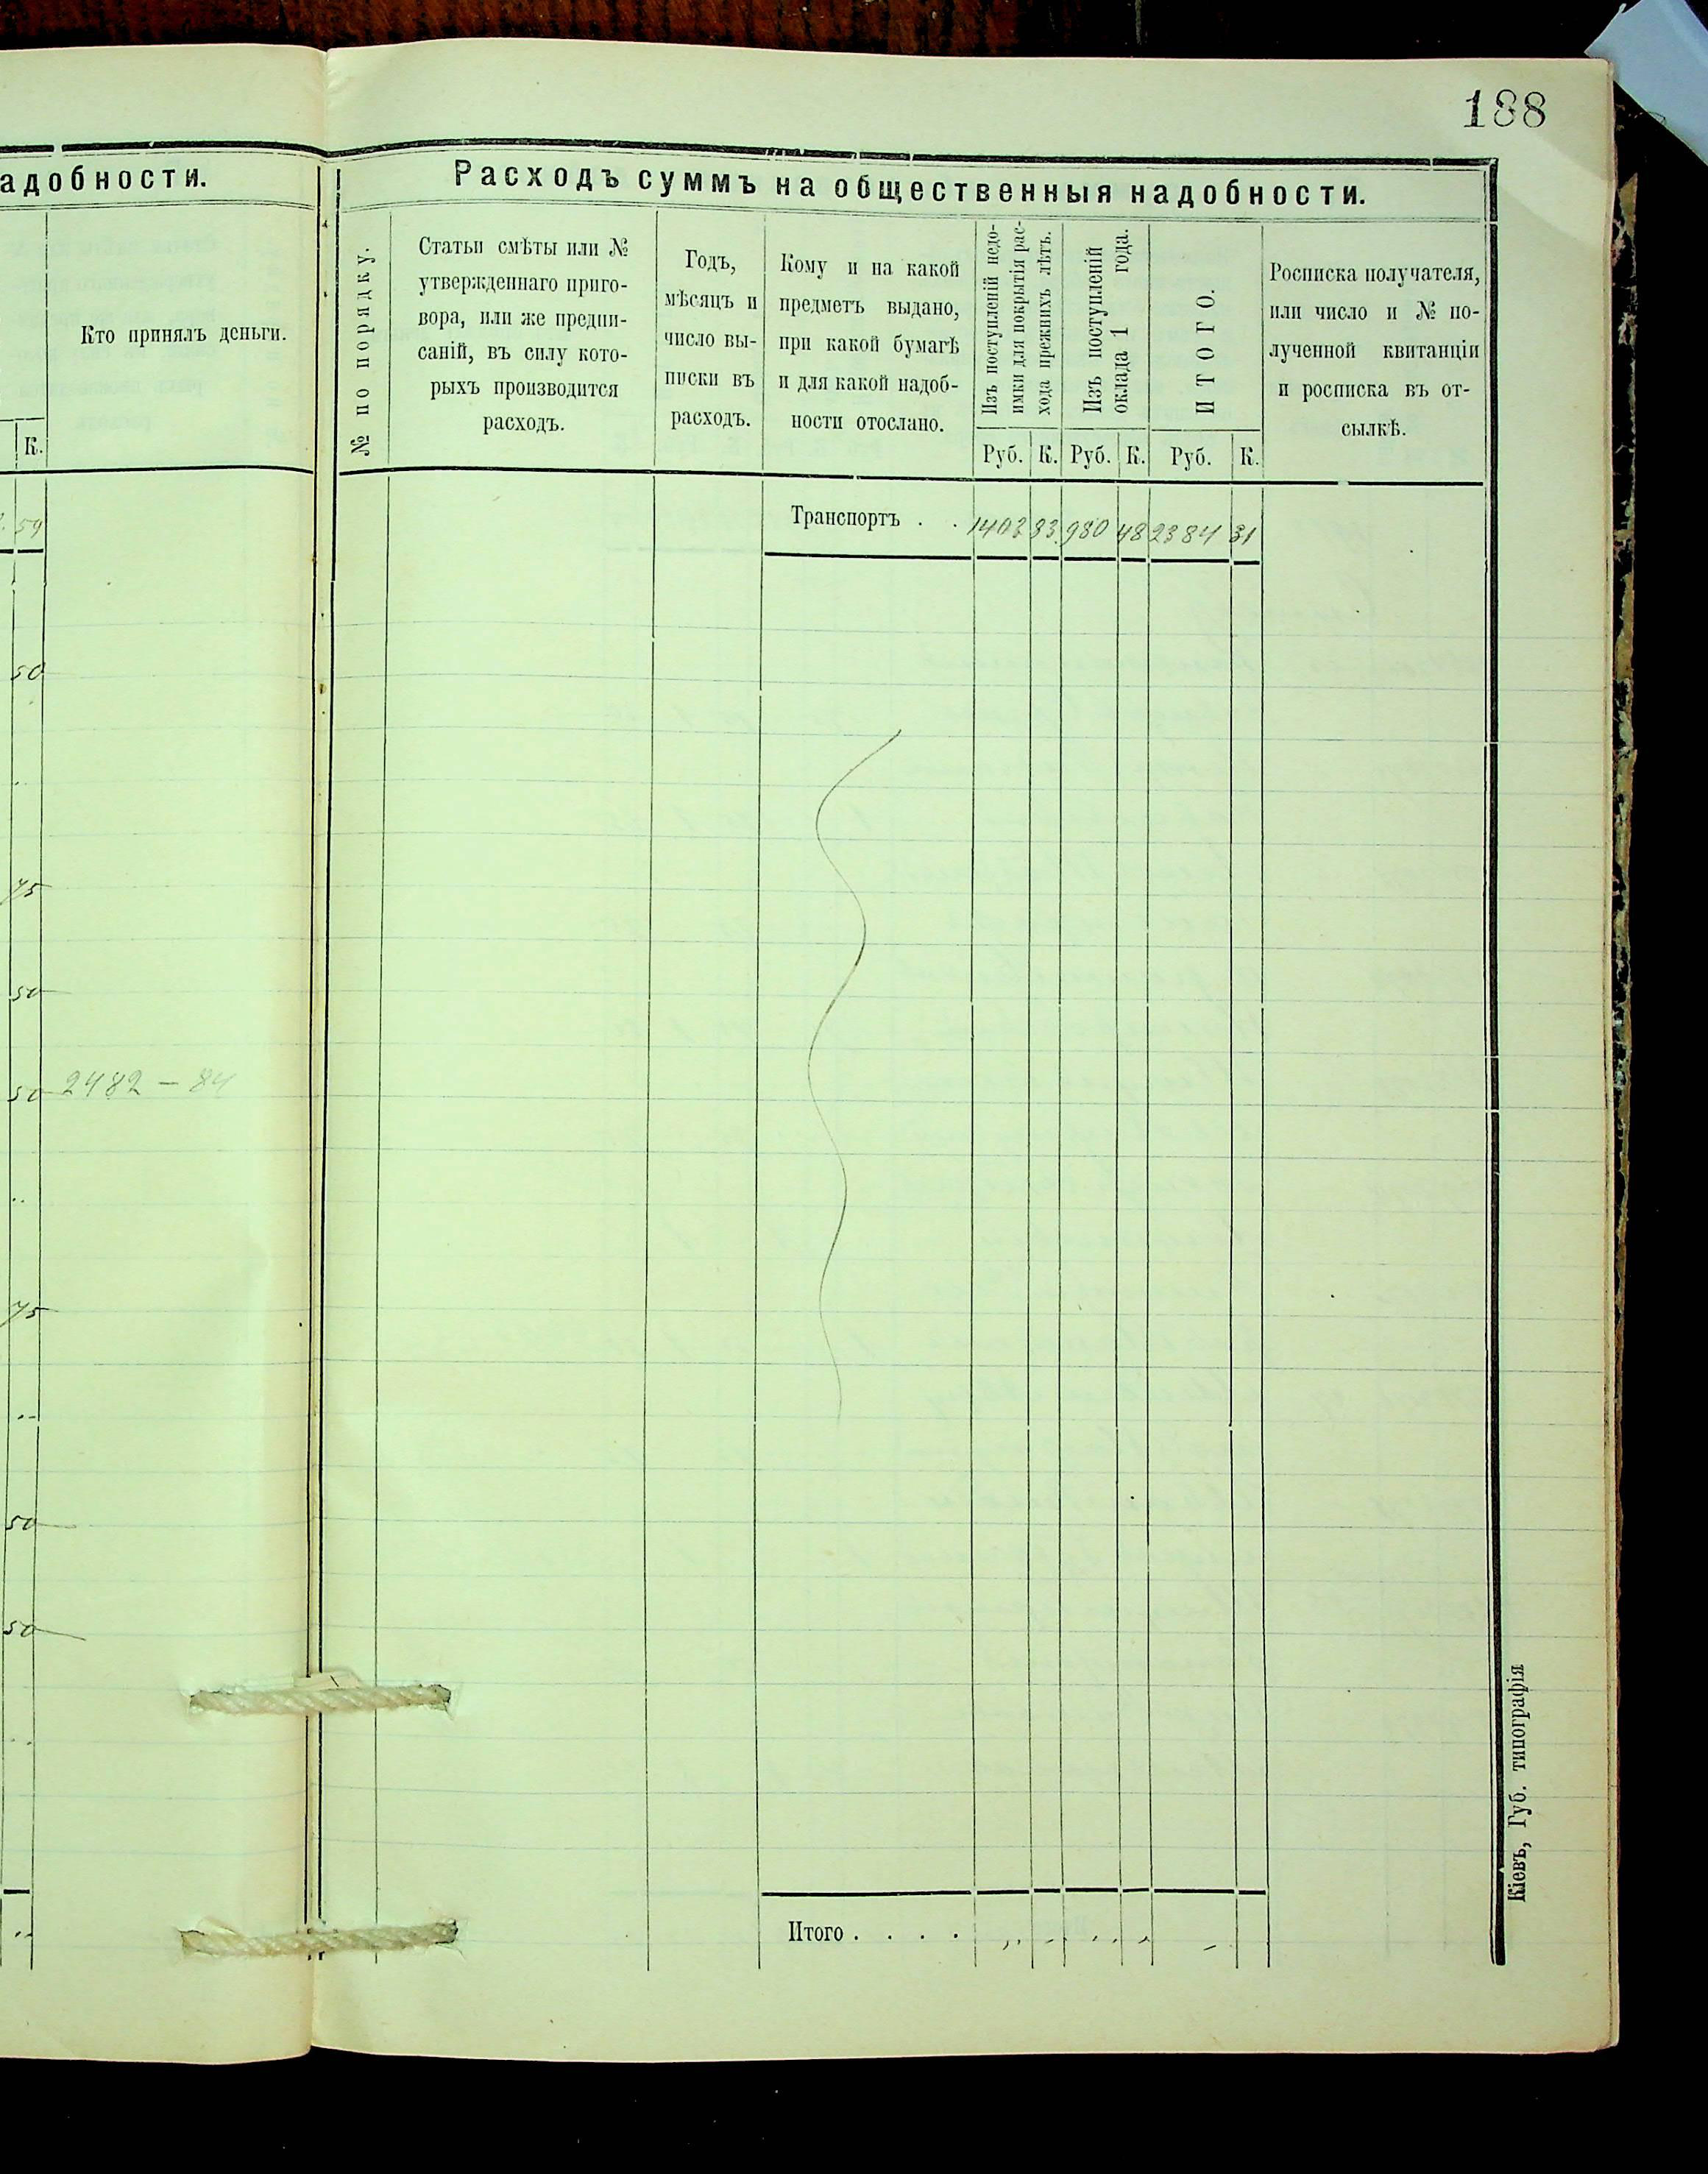 188
адобности.
Кто принялъ деньги.
К.
59
50
75
50
50 2482 – 84
75
50
50
Расходъ суммъ на общественныя надобности.
№ по порядку.
Статьи смѣты или №
утвержденнаго приго-
вора, или же предпи-
саній, въ силу кото-
рыхъ производится
расходъ.
Годъ,
мѣсяцъ и
число вы-
писки въ
расходъ.
Кому и на какой
предметъ выдано,
при какой бумагѣ
и для какой надоб-
ности отослано.
Изъ поступленій недо-
имки для покрытія рас-
хода прежнихъ лѣтъ.
Изъ поступленій
оклада 1 года.
ИТОГО.
Росписка получателя,
или число и № по-
лученной квитанціи
и росписка въ от-
сылкѣ.
Руб. К. Руб. К. Руб. К.
Транспортъ . . 1403 83 980 48 2384 31
Итого . . . .
Кіевъ, Губ. типографія